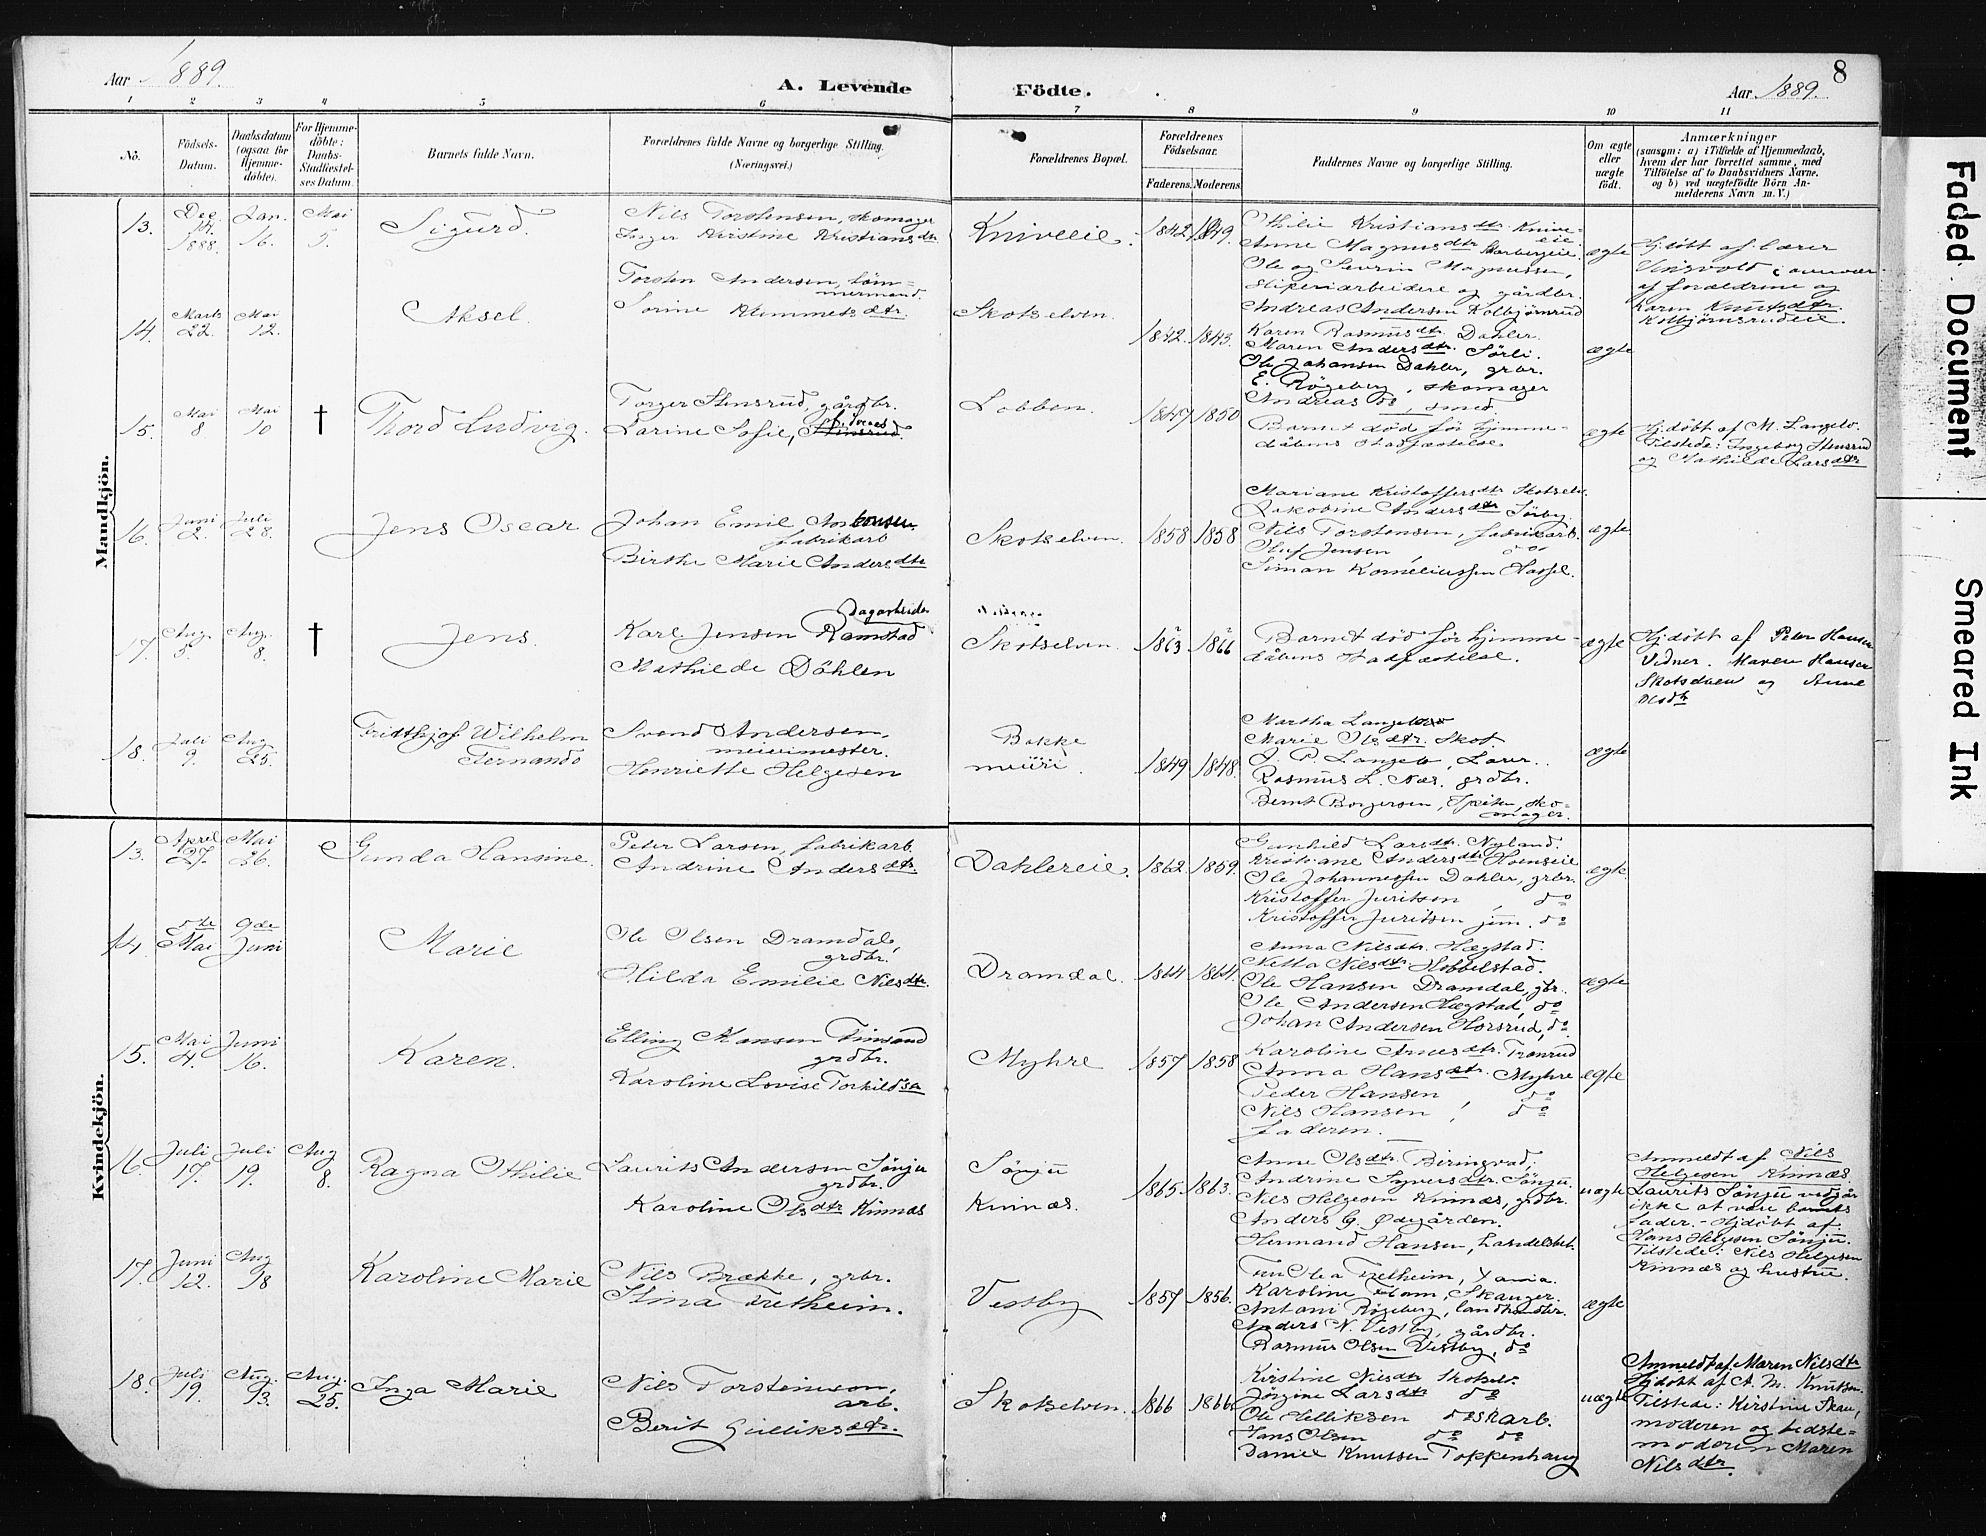 Aar 1889.
A. Levende Födte.
Aar 1889.
8
1 2 3 4 5 6 7 8 9 10 11
No.
Födsels-Datum.
Daabsdatum (ogsaa for Hjemme-döbte).
For Hjemme-döbte: Daabs-Stadfæstel-ses Datum.
Barnets fulde Navn.
Forældrenes fulde Navne og borgerlige Stilling. (Næringsvei.)
Forældrenes Bopæl.
Forældrenes Födselsaar.
Faderens. Moderens.
Faddernes Navne og borgerlige Stilling.
Om ægte eller uægte födt.
Anmærkninger
(saasom: a) i Tilfælde af Hjemmedaab, hvem der har forrettet samme, med Tilföielse af to Daabsvidners Navne, og b) ved uægtefödte Börn Anmelderens Navn m.V.)
Mandkjön.
13. Dec. 14. 1888. Jan. 16. Mai 5. Sigurd.
Nils Torstensen, skomager
Inger Kirstine Kristiansdtr
Kniveeie. 1842 1849.
Othilie Kristiansdtr. Kniveeie
Anne Magnusdtr
Ole og Severin Magnussen,
sliperiarbeidere og gårdbr.
ægte
Hj.døbt af lærer
af forældrene og
Karen Knutsdtr.
Kolbjørnsrudeie.
14. Marts 22. Mai 12. Aksel.
Torsten Andersen, tömmermand.
Sorine Klemmetsdtr.
Skotselven. 1842. 1843.
Andreas Andersen Kolbjørnsrud
Karen Rasmusdtr. Dahler.
Maren Andersdtr. Sørli.
Ole Johansen Dahler, grbr.
E. Røgeberg, skomager
Andreas do, smed.
ægte
15. Mai 8 Mai 10 † Thord Ludvig.
Torger Stensrud, gårdbr.
Larine Sofie,
Lobben. 1847 1850
Barnet død før hjemmedåbens stadfæstelse
ægte
Hj.døbt af M. Langelo.
Tilstede: Ingeborg Stensrud
og Mathilde Larsdtr
16. Juni 2. Juli 28. Jens Oscar
Johan Emil Antonsen, fabrikarb
Birthe Marie Andersdtr
Skotselven. 1858 1858
Mariane Kristoffersdtr Skotselv.
Jakobine Andersdtr Sørby.
Nils Torstensen, fabrikarb.
Oluf Jensen do
Simon Korneliussen Hassel.
ægte
17. Aug. 5. Aug. 8. † Jens.
Dagarbeider
Karl Jensen Ramstad
Mathilde Döhlen
Skotselven. 1863 1866
Barnet død før hjemmedåbens stadfæstelse.
ægte
Hj.døbt af Peter Hansen
Vidner. Maren Hansen
Skotselven og Anne
Olsdtr
18. Juli 9. Aug. 25. Fridthjof Wilhelm Fernando
Svend Andersen, meierimester.
Henriette Helgesen
Bakke meieri. 1849 1848.
Martha Langeloe
Marie Olsdtr. Skot.
J. P. Langelo, Lærer.
Rasmus L. Næs, grdbr.
Bernt Borgersen, skomager.
ægte
Kvindekjön.
13. April 27. Mai 26. Gunda Hansine.
Peter Larsen, fabrikarb.
Andrine Andersdtr
Dahlereie. 1862. 1859.
Gunhild Larsdtr. Nyland.
Kristiane Andersdtr Hoenseie
Ole Johannessen Dahler, grbr.
Kristoffer Juritsen, do
Kristoffer Juritsen jun. do
ægte.
14. 5te Mai 9de Juni Marie
Ole Olsen Dramdal, grdbr.
Hilda Emilie Nilsdtr.
Dramdal. 1864 1864.
Anna Nilsdtr. Hægstad.
Netta Nilsdtr Hobbelstad.
Ole Hansen Dramdal, gbr.
Ole Andersen Hægstad, do
Johan Andersen Horsrud, do
ægte
15. Mai 4. Juni 16. Karen.
Elling Hansen Finsrud grdbr.
Karoline Lovise Torkildsdtr
Myhre 1857 1858
Karoline Arnesdtr. Tronrud
Anna Hansdtr. Myhre
Peder Hansen do
Nils Hansen, do
faderen.
ægte
16. Juli 17. Juli 19. Aug 8. Ragna Othilie
Laurits Andersen Sønju grdbr.
Karoline Olsdtr Kinnæs
Sønju
Kinnæs. 1865. 1863.
Anne Olsdtr. Biringvad,
Andrine Syversdtr. Sønju.
Nils Helgesen Kinnæs, grdbr.
Anders G. Ødegården.
Hermand Hansen, handelsbet.
uægte
Anmeldt af Nils
Helgesen Kinnæs.
Laurits Sønju vedgår
ikke at være barnets
fader. - Hjdøbt af
Hans Helgesen Sønju.
Tilstede: Nils Helgesen
Kinnæs og hustru.
17. Juni 12. Aug 18 Karoline Marie
Nils Brække, grbr.
Stina Fretheim.
Vestby 1857 1856.
Fru Olea Fretheim, Xania.
Karoline Flom, Skauger.
Antoni Røgeberg, landhandler.
Anders N. Vestby, gårdbr.
Rasmus Olsen Vestby, do
ægte
18. Juli 19. Aug. 13. Aug. 25. Inga Marie
Nils Torsteinson, arb.
Berit Gulliksdtr.
Skotselven. 1866 1866.
Kirstine Nilsdtr Skotselv.
Jørgine Larsdtr do
Ole Helliksen do skarb.
Hans Olsen do do
Daniel Knutsen Toppenhaug
uægte
Anmeldt af Maren Nilsdtr
Hjdøbt af A. M. Knutsen
Tilstede: Kirstine Skau,
moderen og bedstemoderen Maren
Nilsdtr.
Faded Document
Smeared Ink